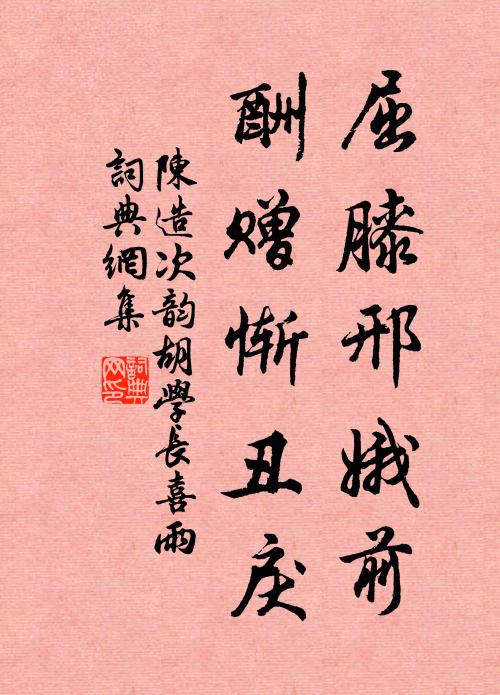 屈膝邢娥前
酬赠惭丑戾
陳造次韵胡學長喜雨
詞典網集
詞典网印